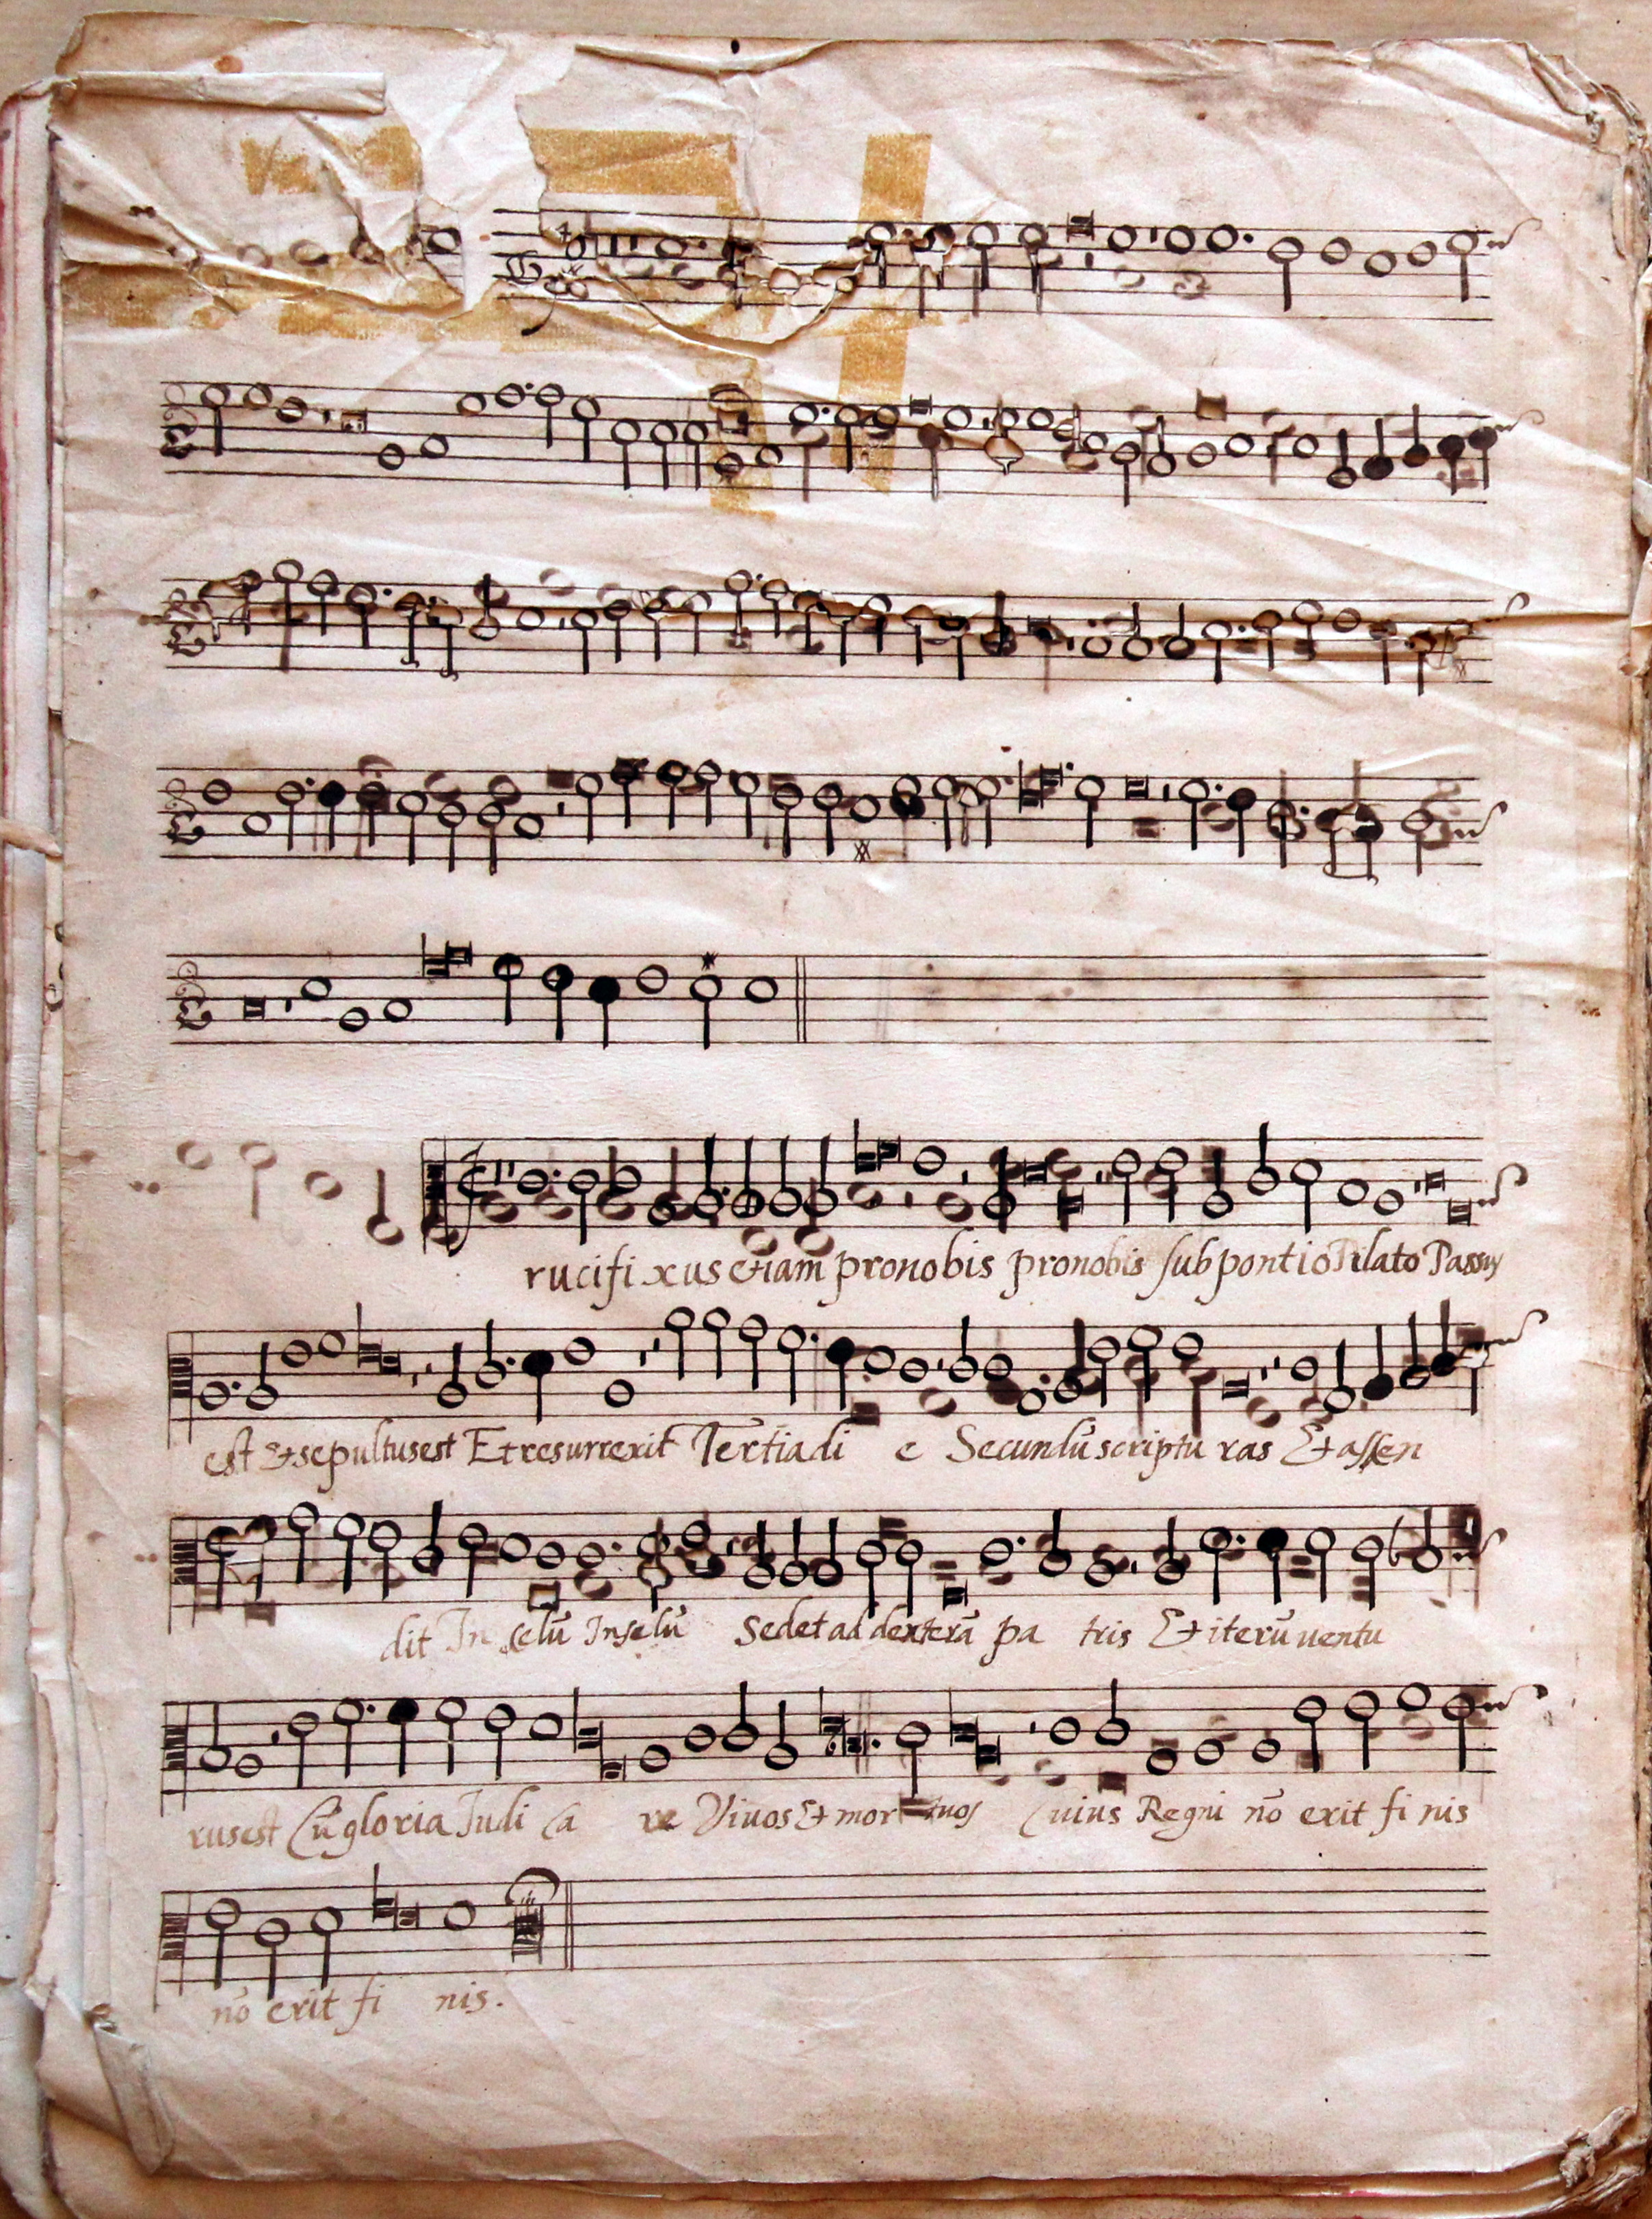 rucifi xus etiam pronobis pronobis sub pontio Pilato Passus
est Et sepultus est Et resurrexit Tertia di e Secundũ scriptu ras Et assen
dit In selũ In selũ Sedet ad dexterã pa tris Et iterũ ventu
rus est Cũ gloria Judi ca re Vivos Et mor tuos Cuius Regni nõ erit fi nis
nõ erit fi nis.